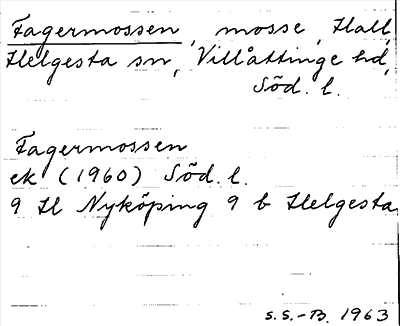 Fagermossen, mosse, Hall,
Helgesta sn, Villåttinge hd,
Söd. l.
Fagermossen
ek (1960) Söd. l.
9 H Nyköping 9 b Helgesta
S.S.-B. 1963